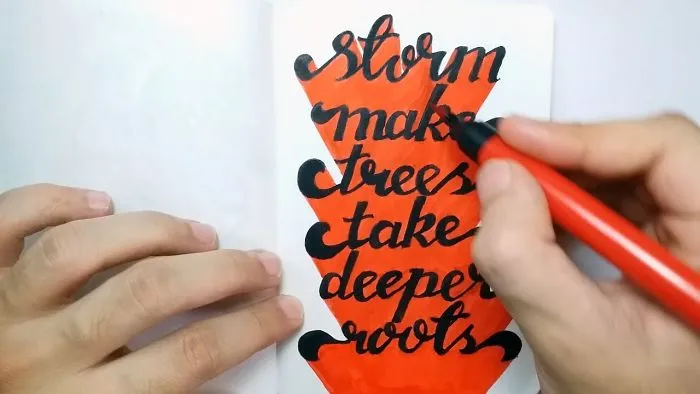 storm
make
trees
take
deeper
roots